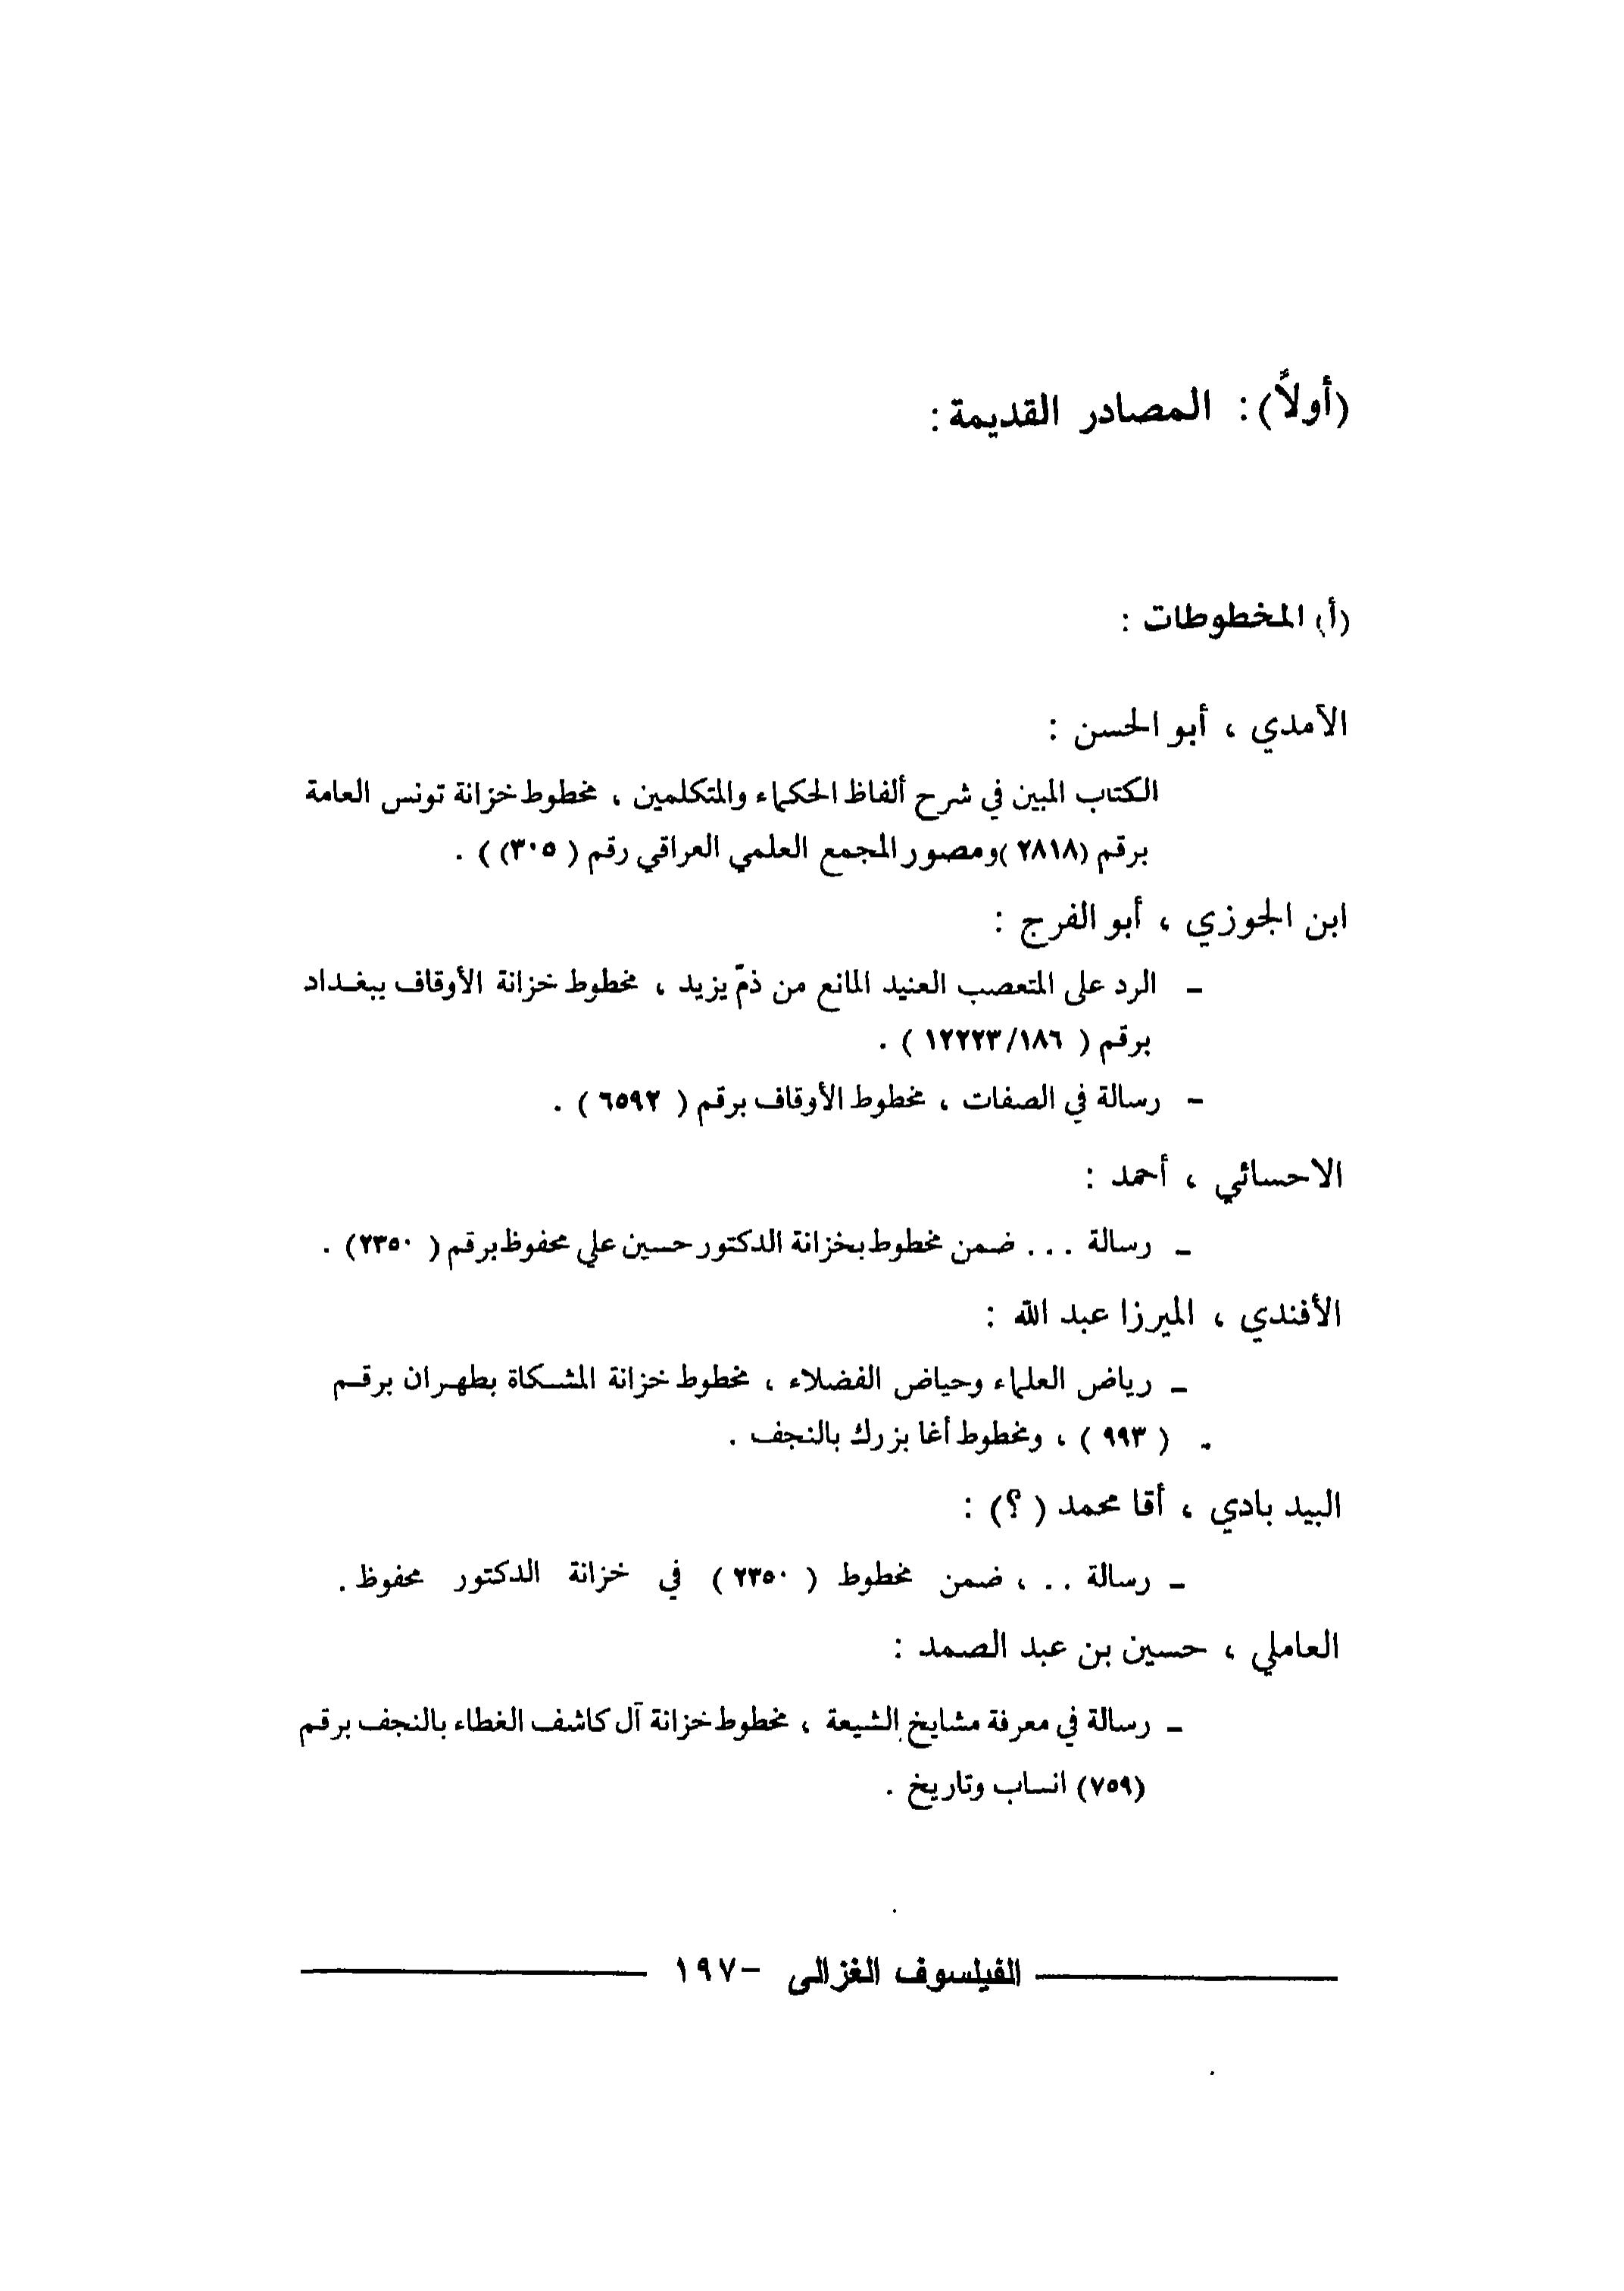 (أولاً): المصادر القديمة:
(أ) المخطوطات :
الآمدي ، أبو الحسن :
الكتاب المبين في شرح ألفاظ الحكماء والمتكلمين ، مخطوط خزانة تونس العامة
برقم (٢٨١٨)ومصور المجمع العلمي العراقي رقم ( ٣٠٥) ) .
ابن الجوزي ، أبو الفرج :
ـ الرد على المتعصب العنيد المانع من ذمّ يزيد ، مخطوط خزانة الأوقاف ببغداد
برقم ( ١٢٢٢٣/١٨٦ ) .
- رسالة في الصفات ، مخطوط الأوقاف برقم ( ٦٥٩٢ ) .
الاحسائي ، أحمد :
ـ رسالة . . . ضمن مخطوط بخزانة الدكتور حسين علي محفوظ برقم ( ٢٣٥٠) .
الأفندي ، الميرزا عبد الله :
ـ رياض العلماء وحياض الفضلاء ، مخطوط خزانة المشكاة بطهران برقم
. ( ٩٩٣ ) ، ومخطوط أغا بزرك بالنجف .
البيد بادي ، أقا محمد ( ؟) :
ـ رسالة . . ، ضمن مخطوط ( ٢٣٥٠ ) في خزانة الدكتور محفوظ .
العاملي ، حسين بن عبد الصمد :
ـ رسالة في معرفة مشايخ الشيعة ، مخطوط خزانة آل كاشف الغطاء بالنجف برقم
(٧٥٩) انساب وتاريخ .
الفيلسوف الغزالى -١٩٧